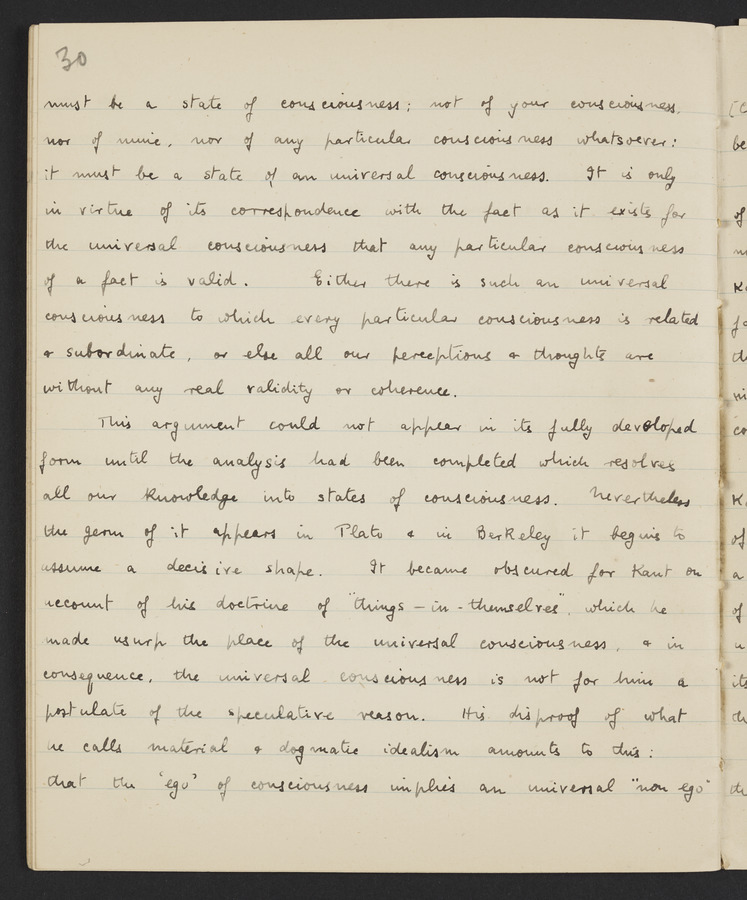 30
must be a state of consciousness; not of your consciousness,
nor of mine, nor of any particular consciousness whatsoever:
it must be a state of an universal consciousness. It is only
in virtue of its correspondence with the fact as it exists for
the universal consciousness that any particular consciousness
of a fact is valid. Either there is such an universal
consciousness to which every particular consciousness is related
& subordinate, or else all our perceptions & thoughts are
without any real validity or coherence.
This argument could not appear in its fully developed
form until the analysis had been completed which resolves
all our knowledge into states of consciousness. Nevertheless
the germ of it appears in Plato & in Berkeley it begins to
assume a decisive shape. It became obscured for Kant on
account of his doctrine of "things-in-themselves", which he
made usurp the place of the universal consciousness, & in
consequence, the universal consciousness is not for him a
postulate of the speculative reason. His disproof of what
he calls material & dogmatic idealism amounts to this:
that the 'ego' of consciousness implies an universal "non ego"